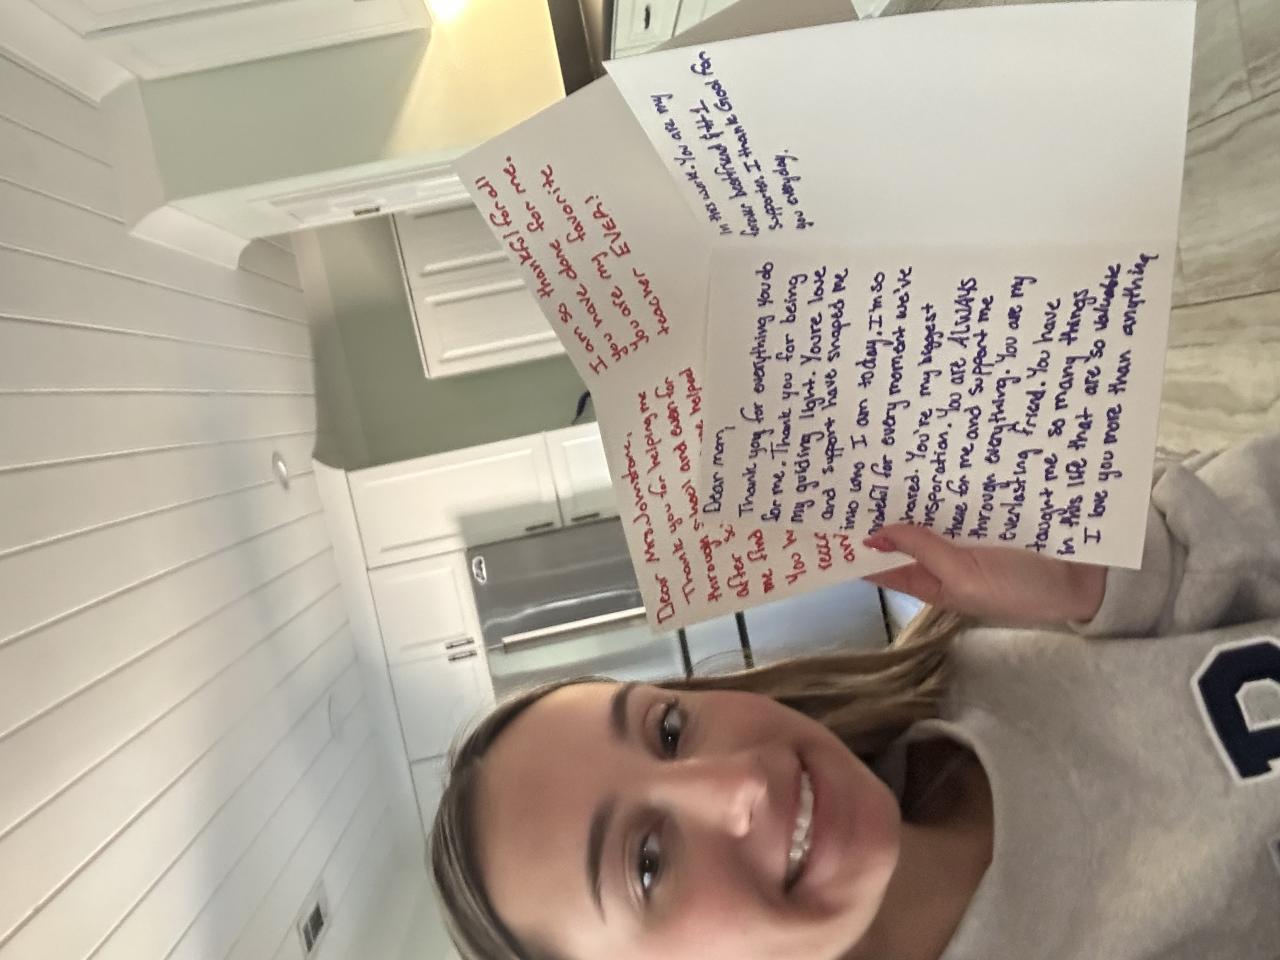 Dear Mrs. Johnstone,
Thank you for helping me
through school and even for
after sc
me find me helped
You h
recc
an
I am so thankful for all
you have done for me.
you are my favorite
teacher EVER!
Dear mom,
Thank you for everything you do
for me. Thank you for being
my guiding light. Youre love
and support have shaped me
into who I am today. I'm so
grateful for every moment we've
shared. You're my biggest
insporation. You are ALWAYS
there for me and support me
through everything. You are my
everlasting friend. You have
taught me so many things
in this life that are so valuable
I love you more than anything
in this world. You are my
forever bestfriend & #1
supporter. I thank God for
you everyday.